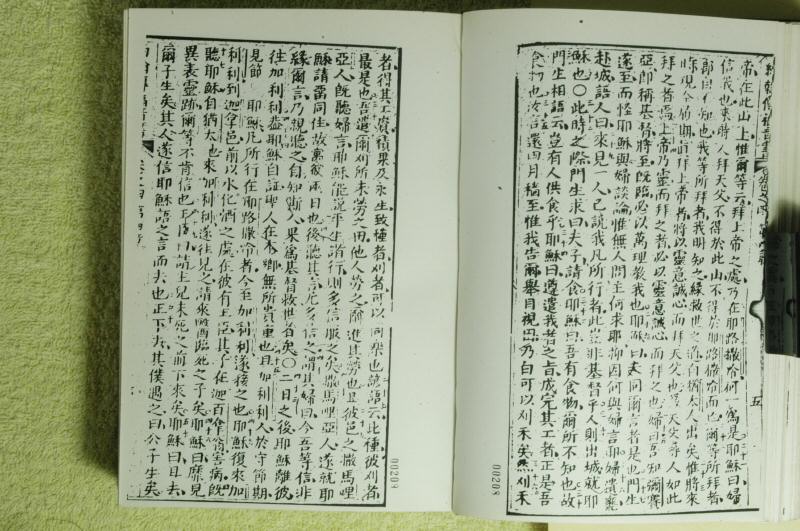 帝在此山上惟爾等云拜上帝之處乃在耶路撒冷何一為是耶穌曰婦
信我也來時人拜天父不得於此山不得於耶路撒冷而已爾等所拜者
即自不知也我等所拜者我明知之緣救世之道自猶太人出矣惟將來
時現今值期真拜上帝者將以靈意誠心而拜天父也蓋天父尋人如此
拜之者焉上帝乃靈而拜之者必以靈意誠心而拜之也婦曰吾知彌賽
亞即稱基督將至既臨必以萬理教我也耶穌曰夫同爾言者是也門生
遂至而怪耶穌與婦談論惟無人問主何求耶抑因何與婦言耶婦遺棄
赴城語人曰來見一人已說我凡所行者此豈非基督乎人則出城就耶
穌也〇此時之際門生求曰夫子請食耶穌曰吾有食物爾所不知也故
門生相語云豈有人供食乎耶穌曰遵遣我者之旨成完其工者正是吾
食物也汝言還四月穡至惟我告爾舉目視田乃白可以刈禾矣然刈禾
五
00208
者得其工資積果及永生致種者刈者可以同樂也諺語云此種彼刈者
最是也吾遣爾刈所未勞之田他人勞之爾進其勞也且彼邑之撒馬哩
亞人既聽婦言耶穌能說平生諸行則多信服之矣撒馬哩亞人遂就耶
穌請當同住故氣彼兩日也後聽其言尤多信之謂其婦曰今吾等信非
緣爾言乃親聽之自知斯人果為基督救世者矣〇二日之後耶穌離彼
往加利利蓋耶穌自証聖人在本鄉無所貴重也且加利利人於守節期
見節 耶穌凡所行在耶路撒冷者今至加利利遂接之也耶穌復來加
利利到迦拿邑前以水化酒之處在彼有王臣其子在迦百拿翁害病既
聽耶穌自猶太也來加利利遂往見之請來醫臨死之子矣耶穌曰靡見
異表靈跡爾等不肯信也王臣曰請主兒未死之前下來矣耶穌曰且去
爾子生矣其人遂信耶穌語之言而去也正下去其僕遇之曰公子生矣
00209